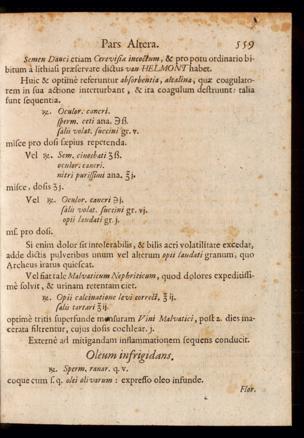 Pars Altera. 559
Semen Dauci etiam Cerevisiæ incoctum, & pro potu ordinario bi-
bitum à lithiasi præservare dictus van HELMONT habet.
Huic & optimè referuntur absorbentia, alcalina, quæ coagulato-
rem in sua actione interturbant, & ita coagulum destruunt: talia
sunt sequentia.
℞. Oculor. cancri.
sperm. ceti ana. ℈ß.
salis volat. succini gr. v.
misce pro dosi sæpius repetenda.
Vel ℞. Sem. cinæbati ʒß.
oculor. cancri.
nitri purissimi ana. ʒj.
misce. dosis ʒj.
Vel ℞. Oculor. cancri ℈j.
salis volat. succini gr. vj.
opii laudati gr. j.
mf. pro dosi.
Si enim dolor sit intolerabilis, & bilis acri volatilitate excedat,
adde dictis pulveribus unum vel alterum opii laudati granum, quo
Archeus iratus quiescat.
Vel fiat tale Malvaticum Nephriticum, quod dolores expeditissi-
mè solvit, & urinam retentam ciet.
℞. Opii calcinatione levi correct. ʒij.
salis tartari ʒij.
optimè tritis superfunde mensuram Vini Malvatici, post 2. dies ma-
cerata filtrentur, cujus dosis cochlear. j.
Externè ad mitigandam inflammationem sequens conducit.
Oleum infrigidans.
℞. Sperm. ranar. q. v.
coque cum s. q. olei olivarum: expresso oleo infunde.
Flor.